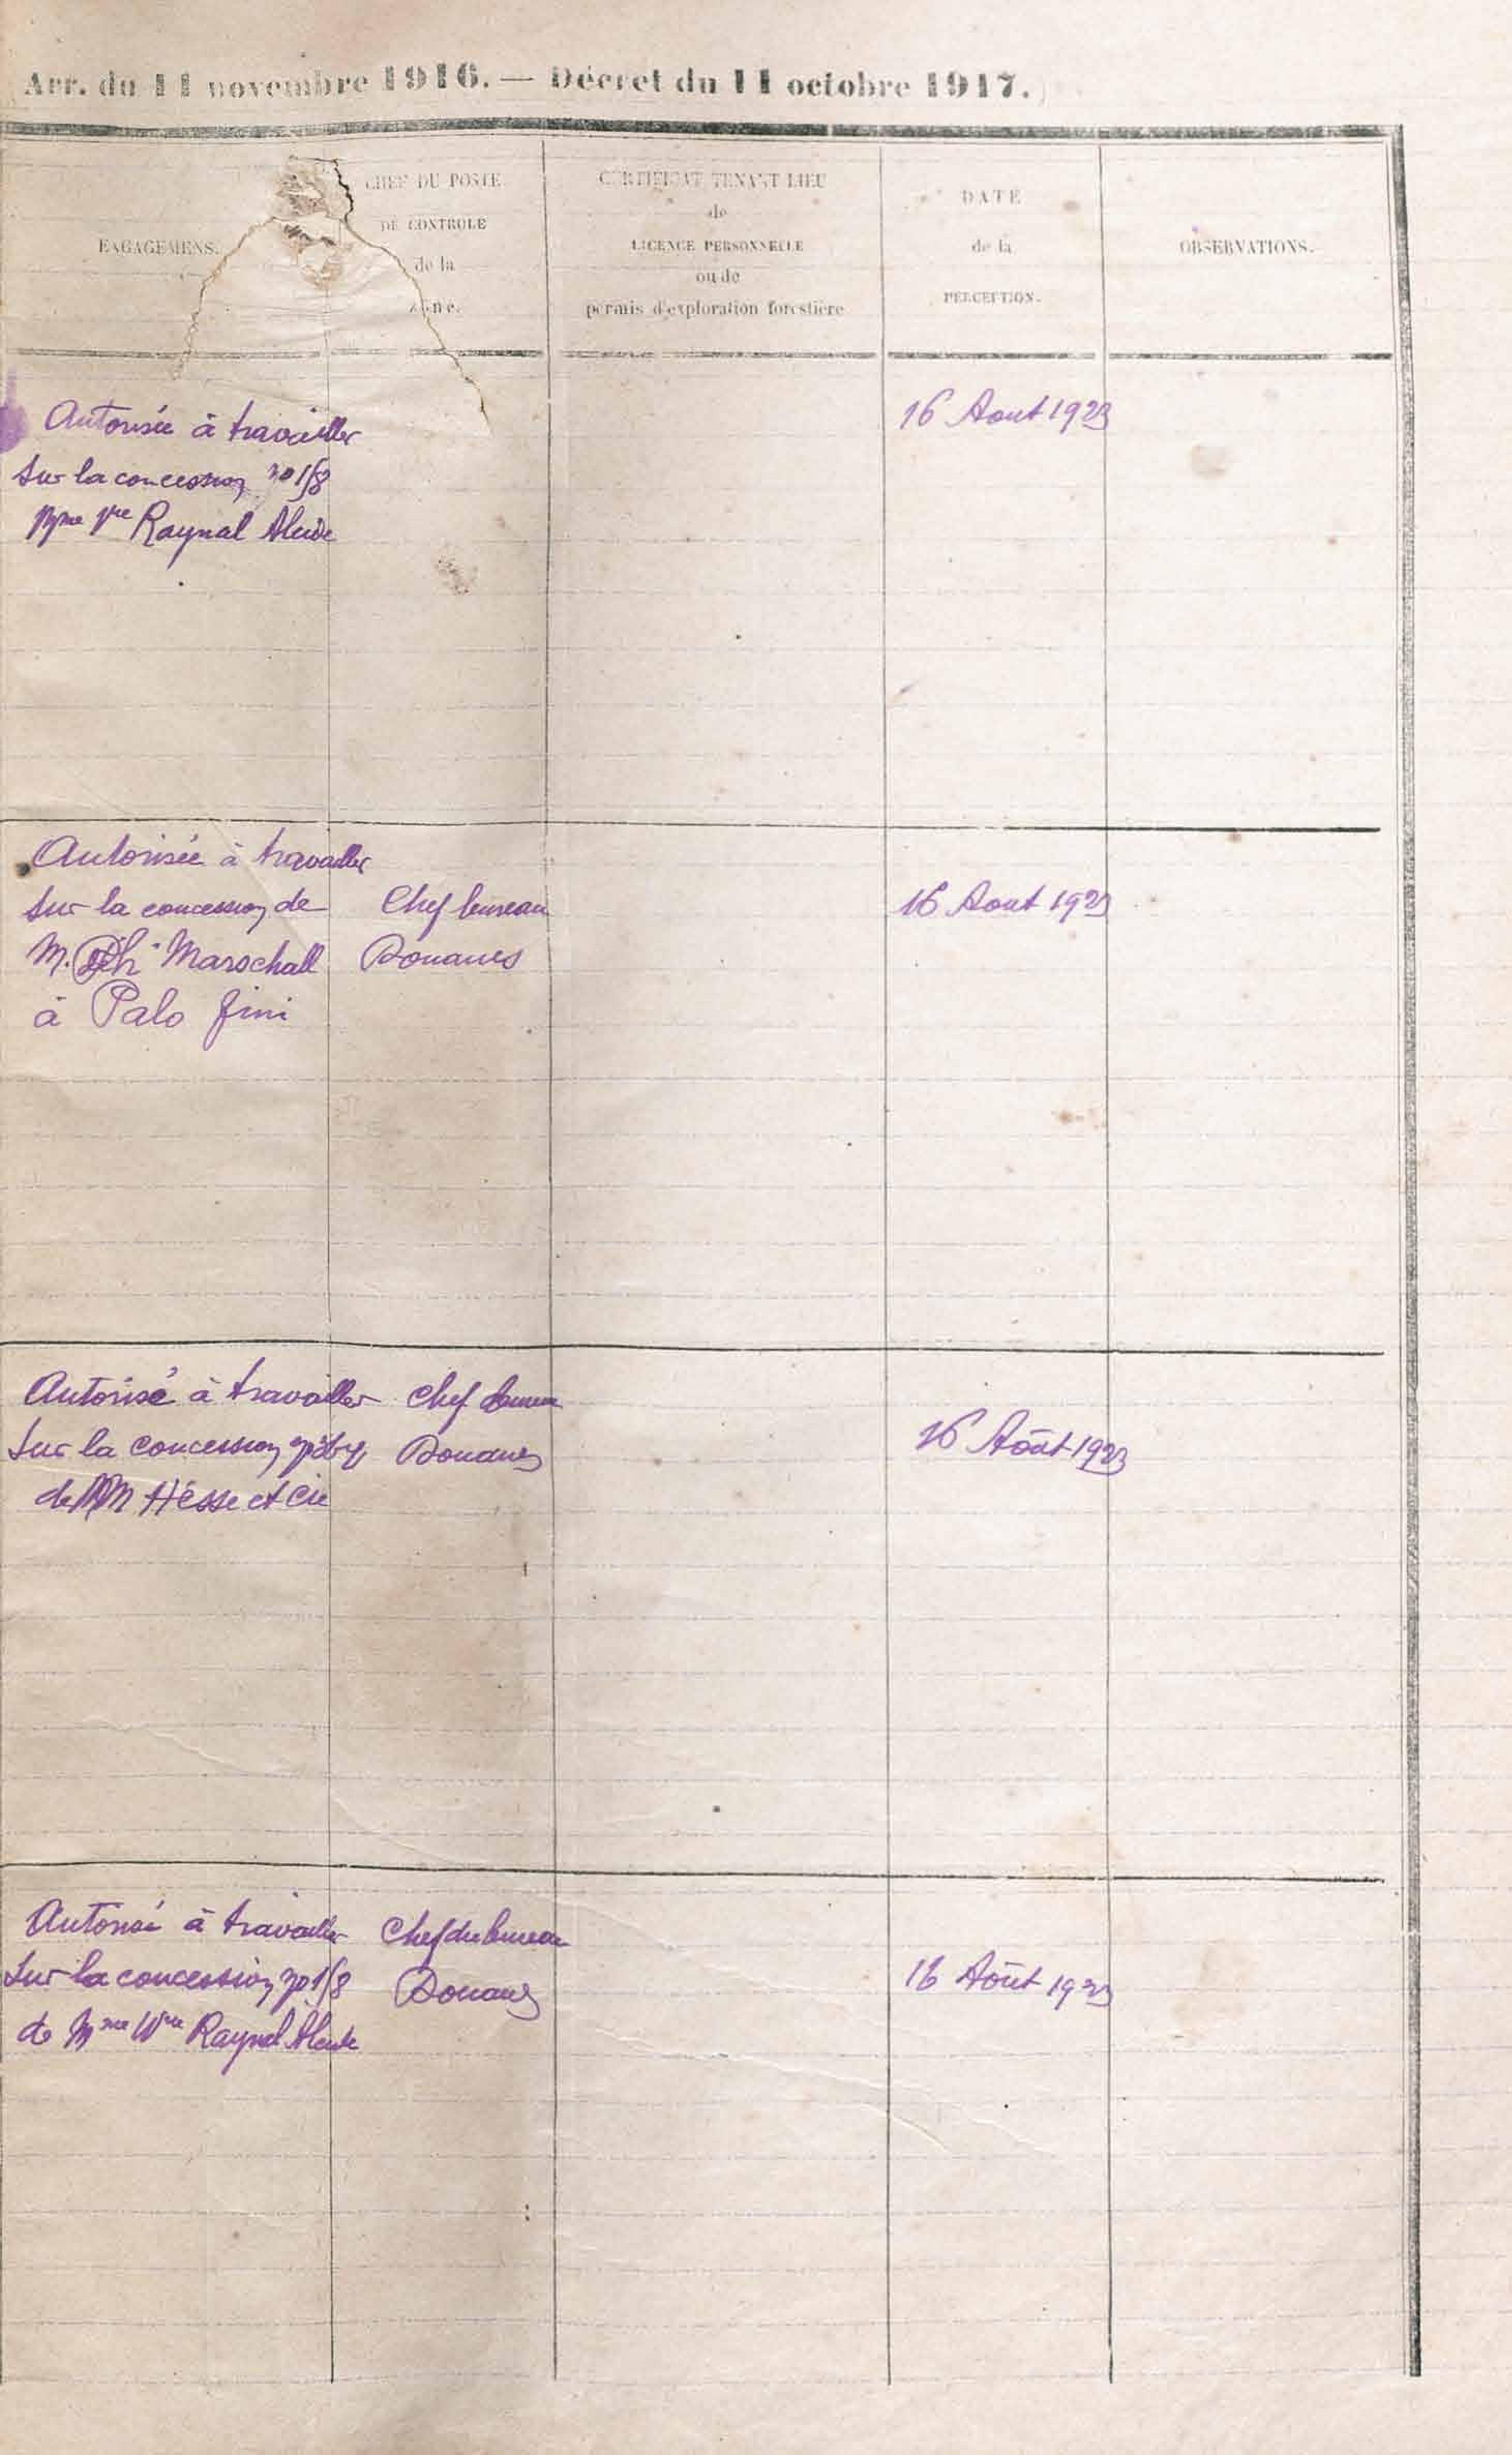 Arr. du 11 novembre 1916. — Décret du 11 octobre 1917.
ENGAGEMENS.
CHEF DU POSTE
DE CONTROLE
de la
zone.
CERTIFICAT TENANT LIEU
de
LICENCE PERSONNELLE
ou de
permis d'exploration forestière
DATE
de la
PERCEPTION.
OBSERVATIONS.
Autorisée à travailler
sur la concession no 1/8
Mme Vve Raynal
16 Aout 1923
Autorisée à travailler
sur la concession de
M. Marschall
à Palo fini
Chef bureau
Douanes
16 Aout 1923
Autorisé à travailler
sur la concession
de MM Hesse et Cie
Chef bureau
Douanes
16 Août 1923
Autorisé à travailler
sur la concession no 1/8
de Mme Vve Raynal
Chef du bureau
Douanes
16 Août 1923